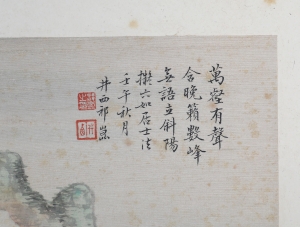 萬壑有聲
含晚籟數峰
無語立斜陽
擬六如居士法
壬午秋月
井西祁崑